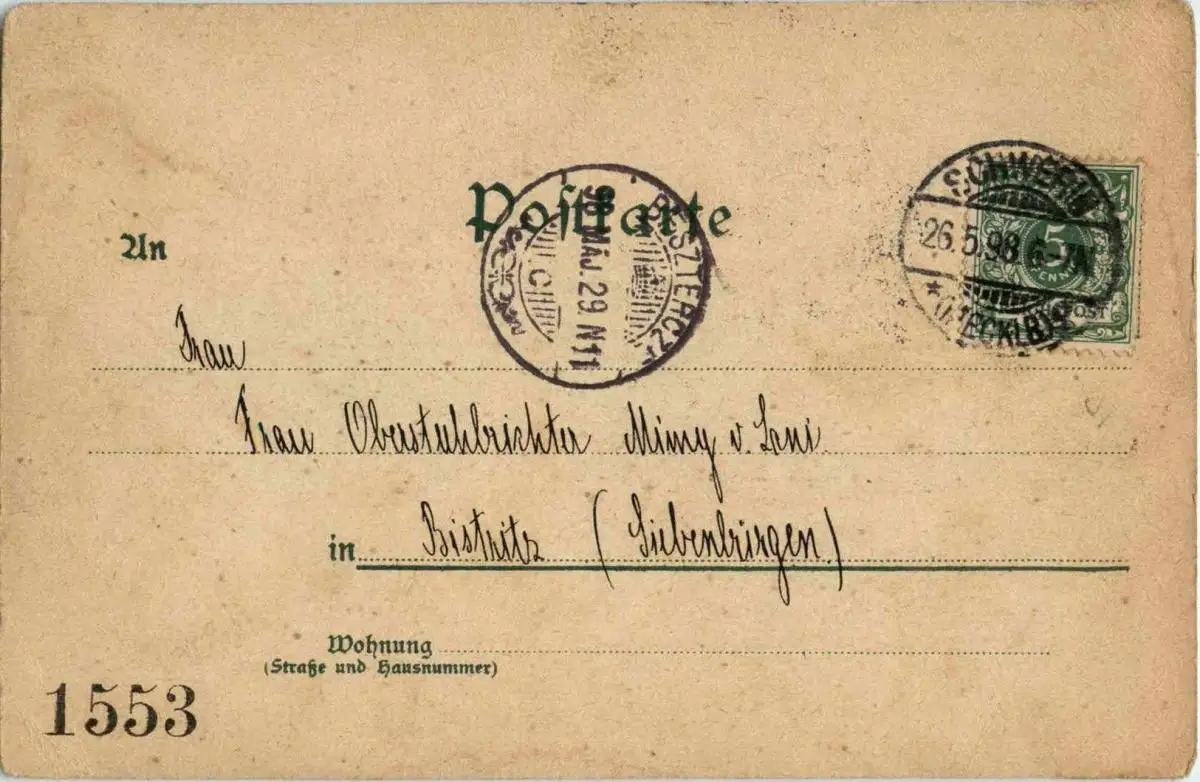 Postkarte
An
BESZTERCZE
98 MÁJ. 29 N11
C
SCHWERIN
26.5.98 6-7N
* (MECKLB)
5
PFENNIG
POST
Frau
Frau Oberstuhlrichter Mimy v.
in Bistritz (Siebenbürgen)
Wohnung
(Straße und Hausnummer)
1553